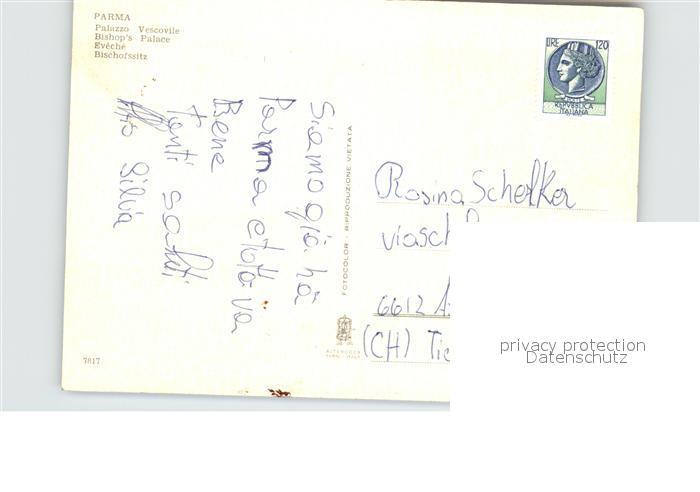 PARMA
Palazzo Vescovile
Bishop's Palace
Evêché
Bischofssitz
LIRE 120
REPVBBLICA
ITALIANA
Siamo già ha
Parma e tutto va
Bene
Tanti saluti
Silvia
FOTOCOLOR - RIPRODUZIONE VIETATA
Rosina Schelker
6612
(CH)
7817
privacy protection
Datenschutz